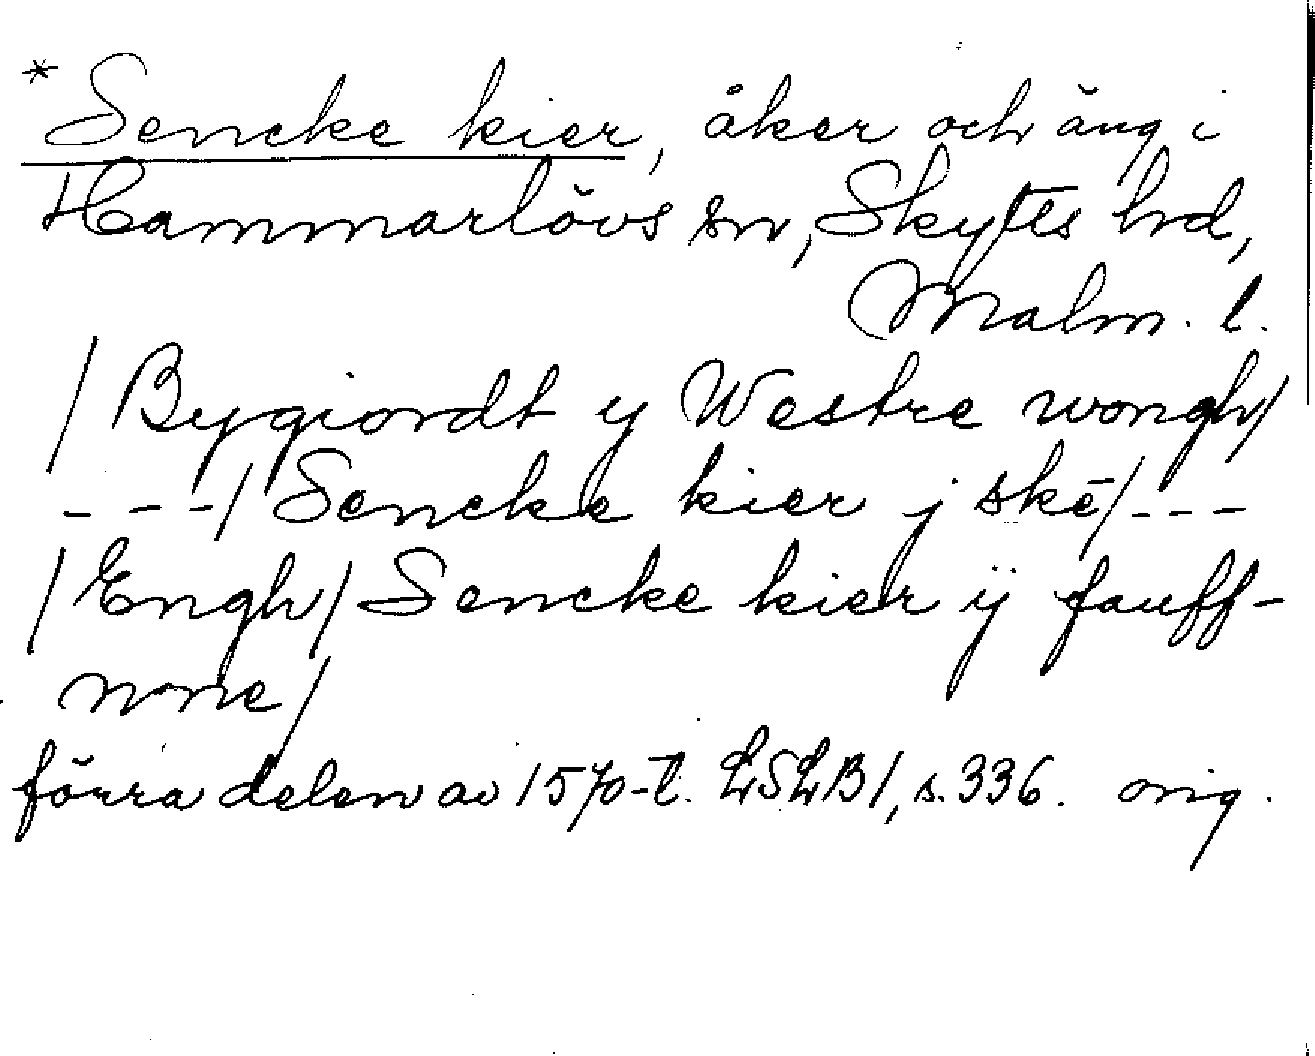 * Sencke kier, åker och äng i
Hammarlövs sn, Skytts hd,
Malm. l.
/ Bygiordt y Westre wongh/
---/ Sencke kier j ske/---
/Engh/ Sencke kier ÿ fauff-
nne/
förra delen av 1570-t. LSLB1, s. 336. orig.